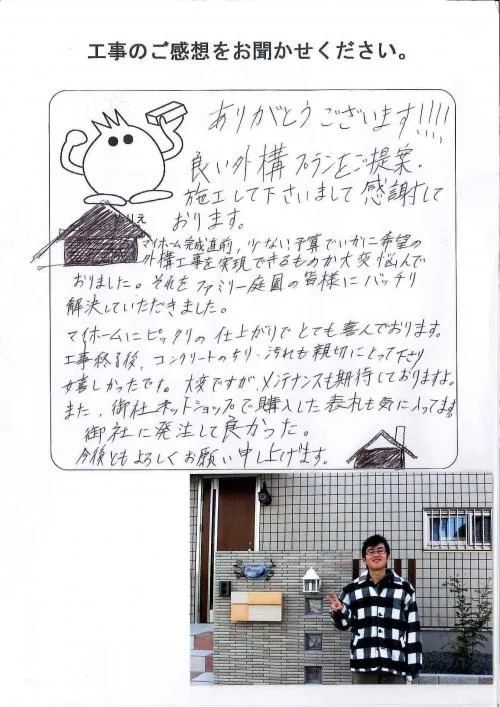 工事のご感想をお聞かせください。
ありがとうございます!!!!
良い外構プランをご提案・
施工して下さいまして感謝して
おります。
マイホーム完成直前、少ない予算でいかに希望の
外構工事を実現できるものか大変悩んで
おりました。それをファミリー庭園の皆様にバッチリ
解決していただきました。
マイホームにピッタリの仕上がりでとても喜んでおります。
工事終了後、コンクリートのちり、汚れも親切にとって下さり
嬉しかったです。大変ですが、メンテナンスも期待しておりますよ。
また、御社ネットショップで購入した表札も気に入ってます。
御社に発注して良かった。
今後ともよろしくお願い申し上げます。